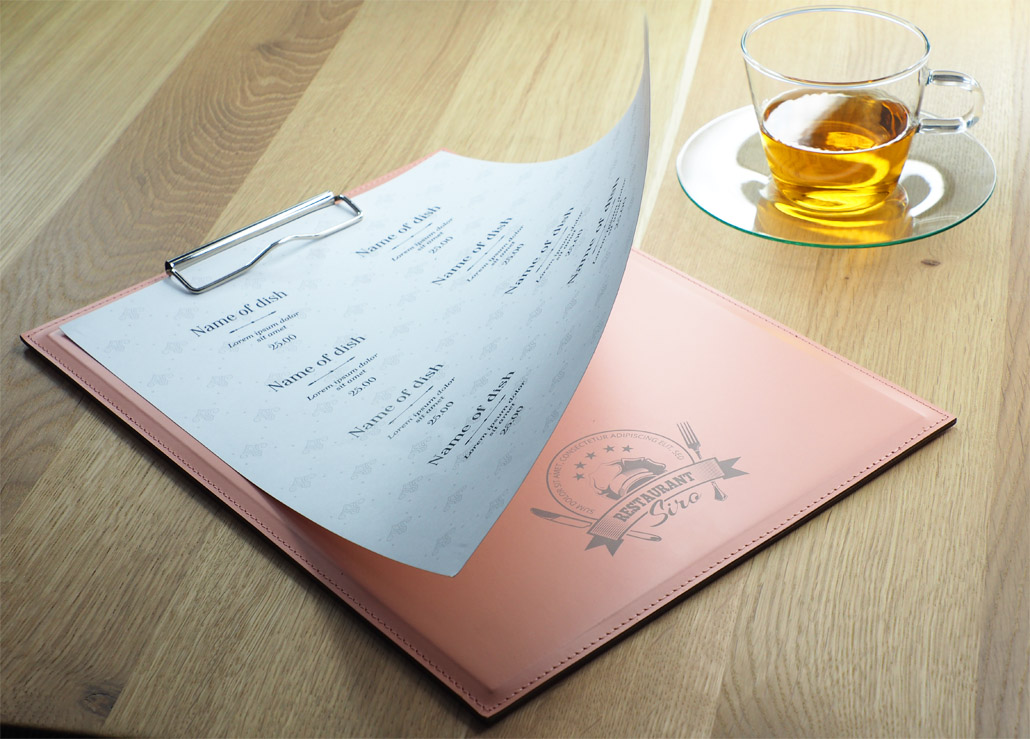 Name of dish
Lorem ipsum dolor
sit amet
25.00
Name of dish
Lorem ipsum dolor
sit amet
25.00
Name of dish
Lorem ipsum dolor
sit amet
25.00
Name of dish
Lorem ipsum dolor
sit amet
25.00
Name of dish
Lorem ipsum dolor
sit amet
25.00
Name of dish
Lorem ipsum dolor
sit amet
25.00
Name of dish
Lorem ipsum dolor
sit amet
25.00
Name of dish
RESTAURANT
Siro